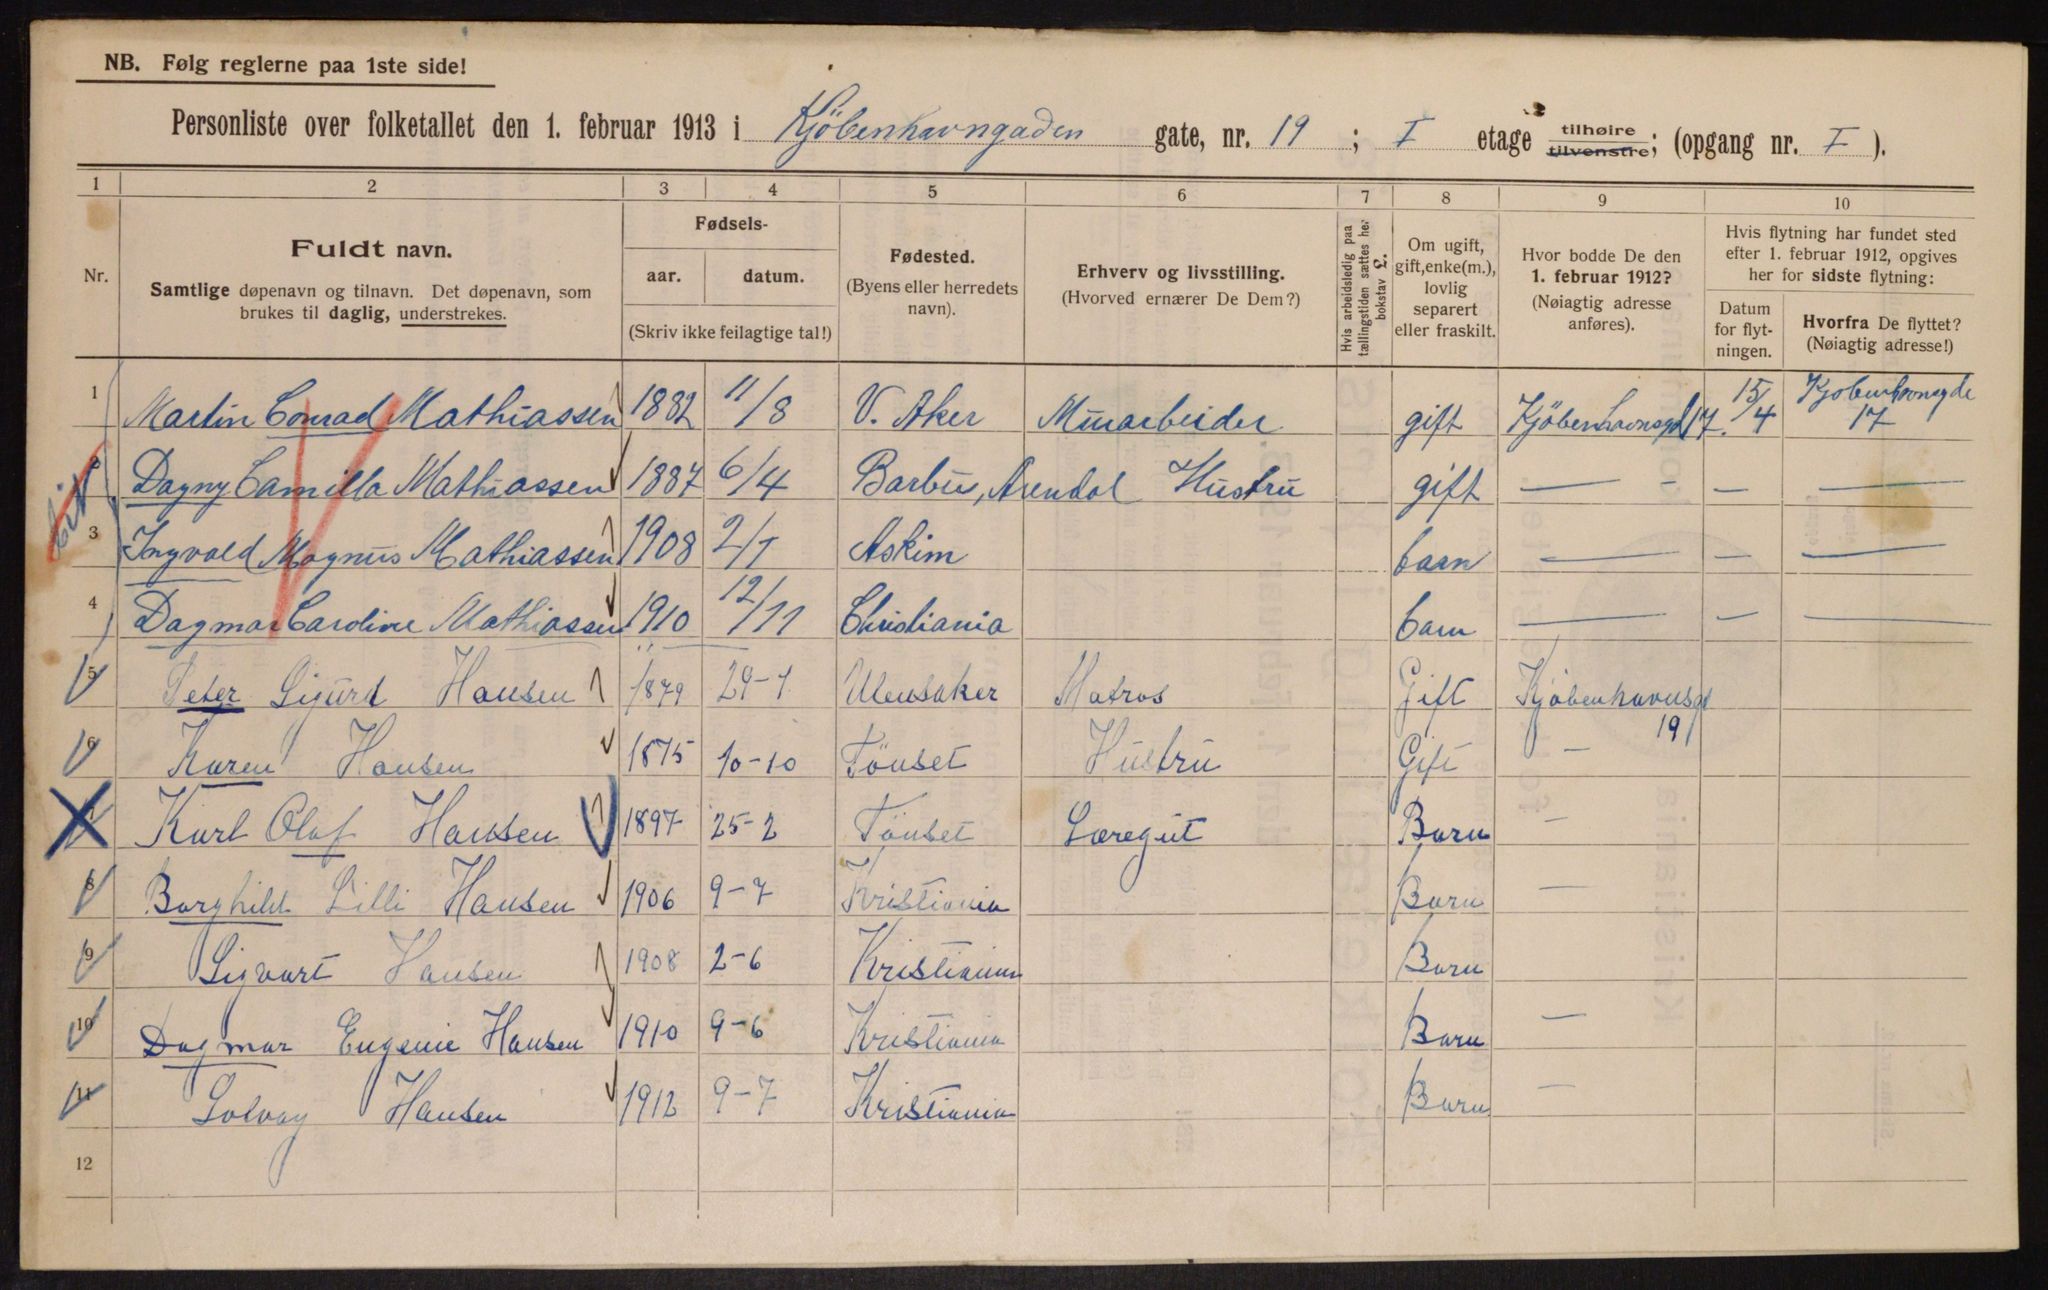 NB. Følg reglerne paa 1ste side!
Personliste over folketallet den 1. februar 1913 i Kjöbenhavngaden gate, nr. 19 ; I etage tilhøire tilvenstre; (opgang nr. I ).
1 2 3 4 5 6 7 8 9 10
Nr.
Fuldt navn.
Samtlige døpenavn og tilnavn. Det døpenavn, som
brukes til daglig, understrekes.
Fødsels-
aar. datum.
(Skriv ikke feilagtige tal!)
Fødested.
(Byens eller herredets
navn).
Erhverv og livsstilling.
(Hvorved ernærer De Dem?)
Hvis arbeidsledig paa
tællingstiden sættes her
bokstav L.
Om ugift,
gift, enke(m.),
lovlig
separert
eller fraskilt.
Hvor bodde De den
1. februar 1912?
(Nøiagtig adresse
anføres).
Hvis flytning har fundet sted
efter 1. februar 1912, opgives
her for sidste flytning:
Datum
for flyt-
ningen.
Hvorfra De flyttet?
(Nøiagtig adresse!)
1 Martin Conrad Mathiassen 1882 11/8 V. Aker Murarbeider gift Kjöbenhavnsgd 17. 15/4 Kjobenhavnsgde 17
2 Dagny Camilla Mathiassen 1887 6/4 Barbu, Arendal Hustru gift — - — —
3 Ingvald Magnus Mathiassen 1908 2/1 Askim barn — — —
4 Dagmar Caroline Mathiassen 1910 12/11 Christiania barn — — —
5 Peter Sigurd Hansen 1879 29-1 Ullensaker Matros Gift Kjöbenhavnsgd 19
6 Karen Hansen 1875 10-10 Tönset Hustru Gift —
7 Karl Olaf Hansen 1897 25-2 Tönset Læregut Barn —
8 Borghild Lilli Hansen 1906 9-7 Kristiania Barn —
9 Sigvart Hansen 1908 2-6 Kristiania Barn —
10 Dagmar Eugenie Hansen 1910 9-6 Kristiania Barn —
11 Solvay Hansen 1912 9-7 Kristiania Barn —
12